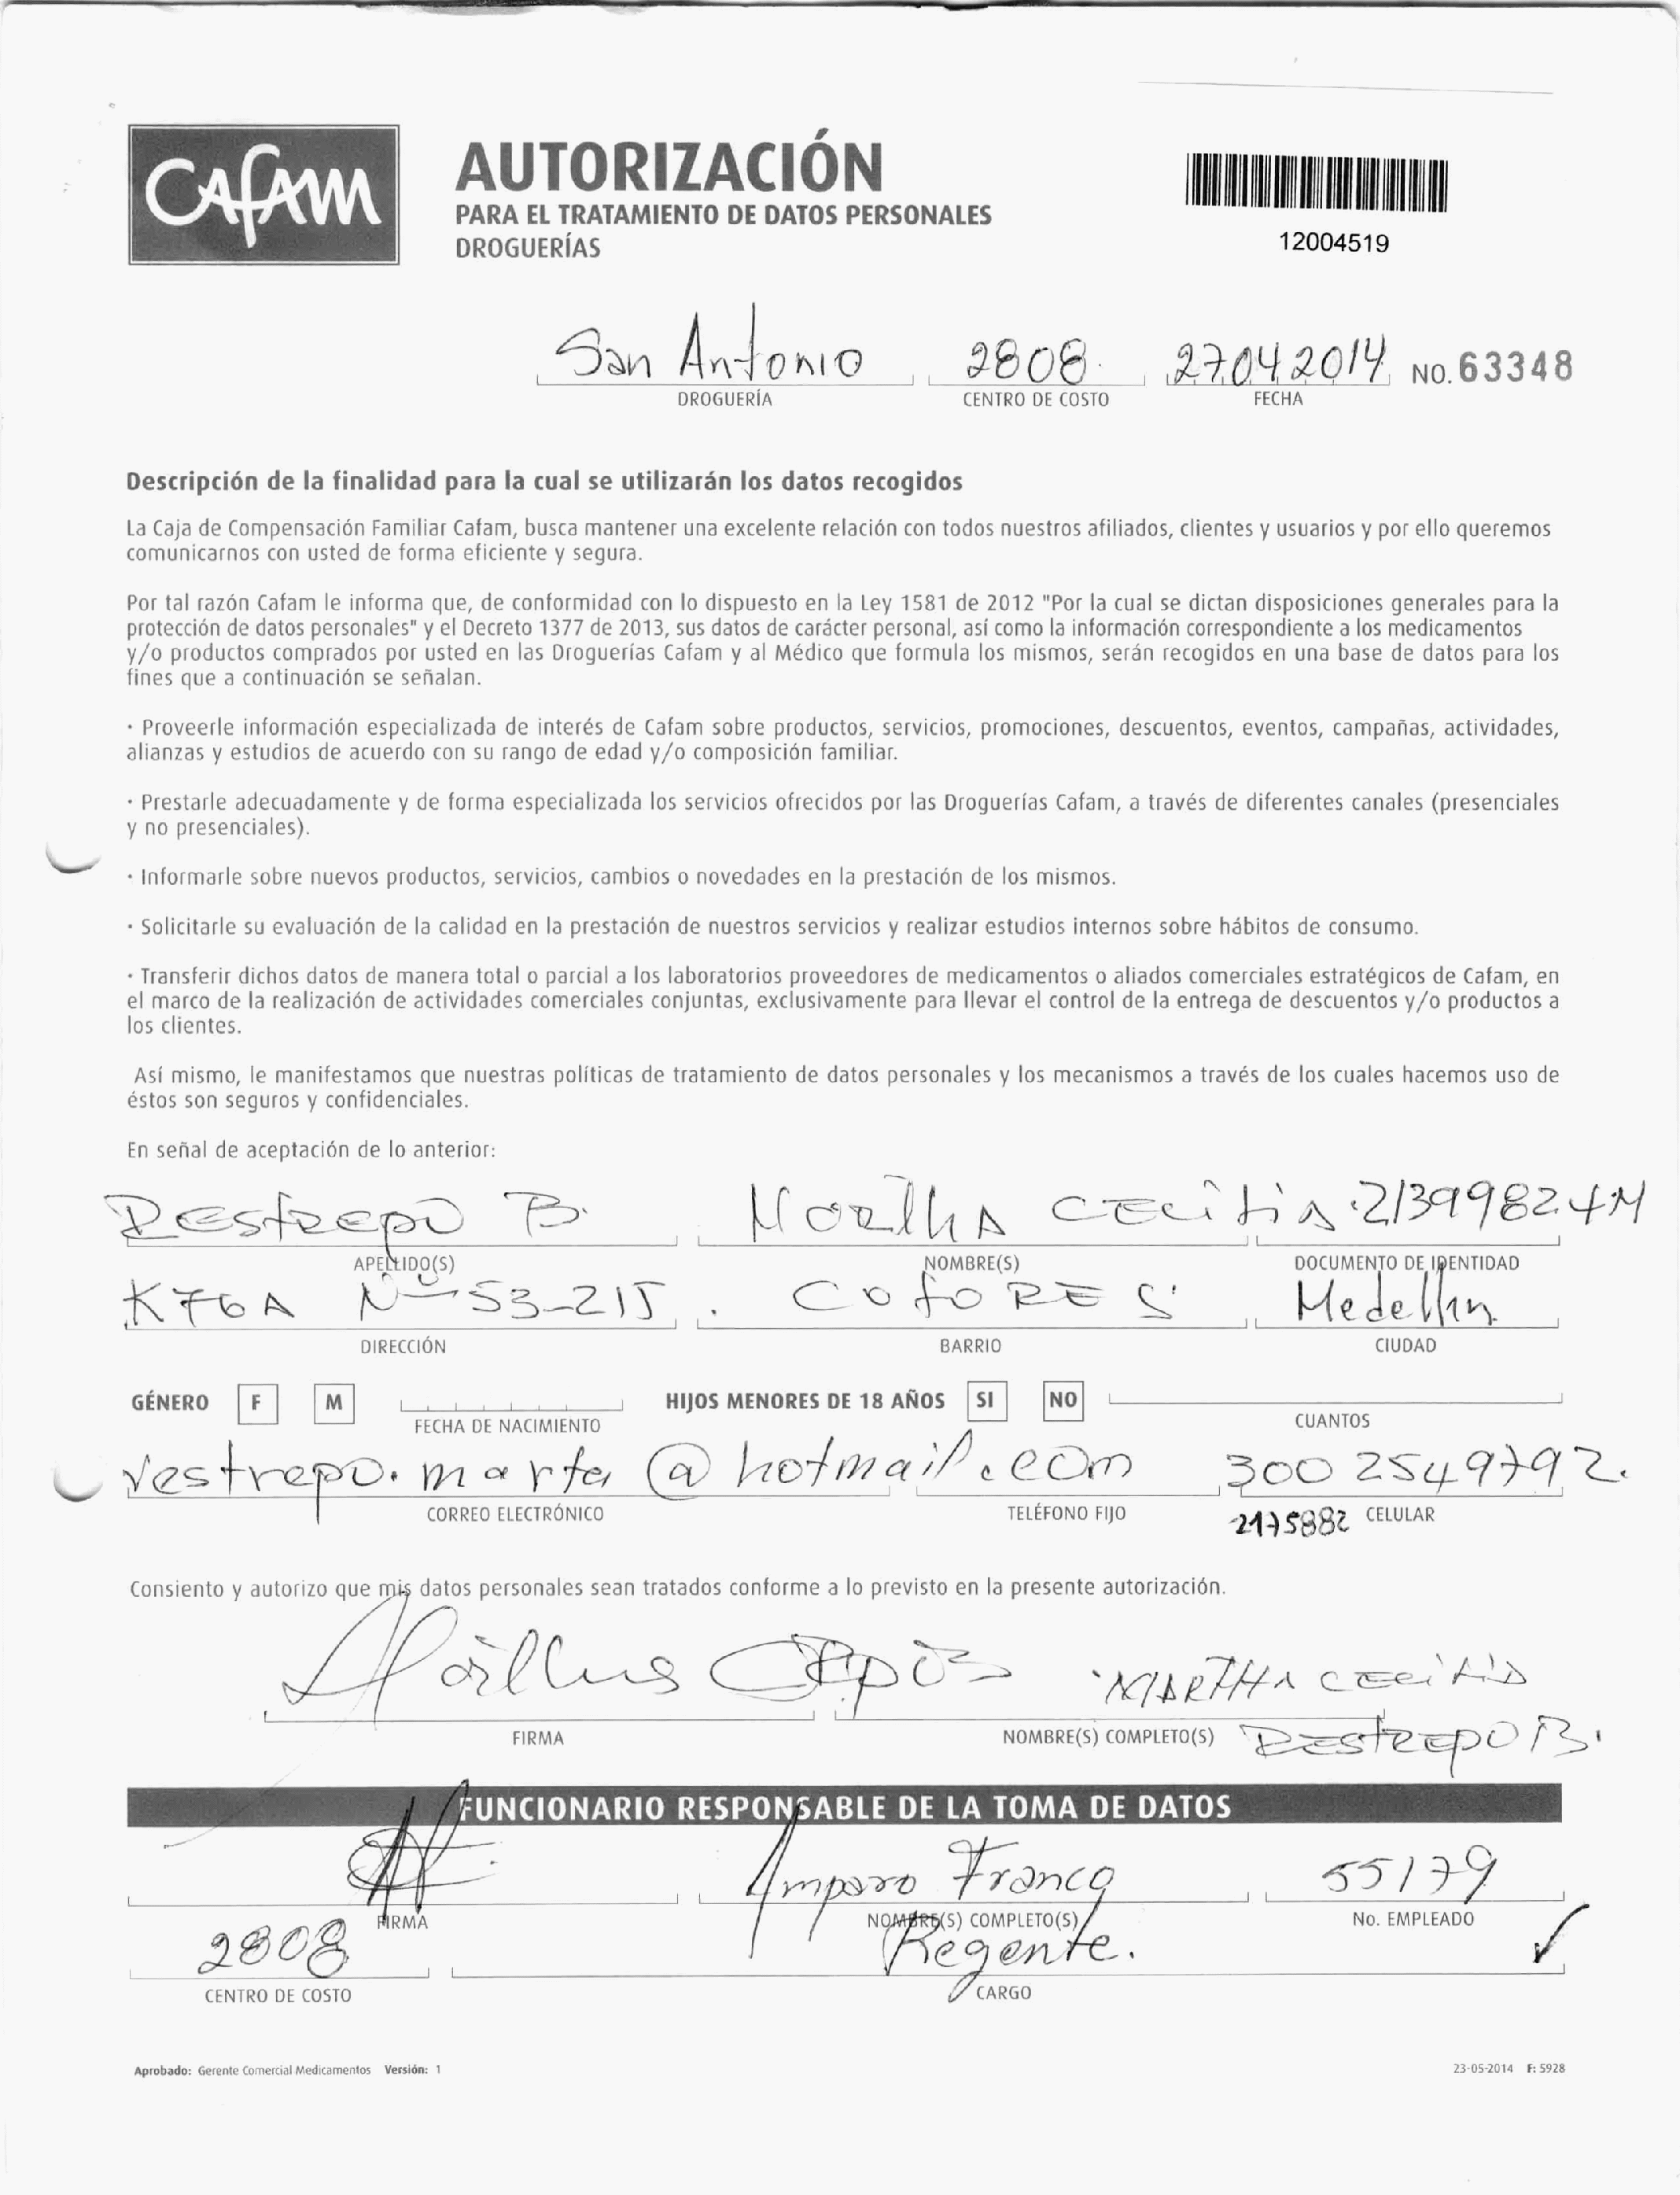 Cafam
AUTORIZACIÓN
PARA EL TRATAMIENTO DE DATOS PERSONALES
DROGUERÍAS
12004519
San Antonio 2808 27042014 NO. 63348
DROGUERÍA CENTRO DE COSTO FECHA
Descripción de la finalidad para la cual se utilizarán los datos recogidos
La Caja de Compensación Familiar Cafam, busca mantener una excelente relación con todos nuestros afiliados, clientes y usuarios y por ello queremos
comunicarnos con usted de forma eficiente y segura.
Por tal razón Cafam le informa que, de conformidad con lo dispuesto en la Ley 1581 de 2012 "Por la cual se dictan disposiciones generales para la
protección de datos personales" y el Decreto 1377 de 2013, sus datos de carácter personal, así como la información correspondiente a los medicamentos
y/o productos comprados por usted en las Droguerías Cafam y al Médico que formula los mismos, serán recogidos en una base de datos para los
fines que a continuación se señalan.
· Proveerle información especializada de interés de Cafam sobre productos, servicios, promociones, descuentos, eventos, campañas, actividades,
alianzas y estudios de acuerdo con su rango de edad y/o composición familiar.
· Prestarle adecuadamente y de forma especializada los servicios ofrecidos por las Droguerías Cafam, a través de diferentes canales (presenciales
y no presenciales).
· Informarle sobre nuevos productos, servicios, cambios o novedades en la prestación de los mismos.
· Solicitarle su evaluación de la calidad en la prestación de nuestros servicios y realizar estudios internos sobre hábitos de consumo.
· Transferir dichos datos de manera total o parcial a los laboratorios proveedores de medicamentos o aliados comerciales estratégicos de Cafam, en
el marco de la realización de actividades comerciales conjuntas, exclusivamente para llevar el control de la entrega de descuentos y/o productos a
los clientes.
Así mismo, le manifestamos que nuestras políticas de tratamiento de datos personales y los mecanismos a través de los cuales hacemos uso de
éstos son seguros y confidenciales.
En señal de aceptación de lo anterior:
Restrepo B. Martha Cecilia
APELLIDO(S) NOMBRE(S) DOCUMENTO DE IDENTIDAD
K76A Nº 53-215. COLORES Medellin
DIRECCIÓN BARRIO CIUDAD
GÉNERO F M HIJOS MENORES DE 18 AÑOS SI NO
FECHA DE NACIMIENTO CUANTOS
restrepo.marta@hotmail.com 300 2549792.
CORREO ELECTRÓNICO TELÉFONO FIJO 2175882 CELULAR
Consiento y autorizo que mis datos personales sean tratados conforme a lo previsto en la presente autorización.
MARTHA CECILIA
FIRMA NOMBRE(S) COMPLETO(S) RESTREPO B.
FUNCIONARIO RESPONSABLE DE LA TOMA DE DATOS
Amparo Franco 55179
FIRMA NOMBRE(S) COMPLETO(S) No. EMPLEADO
2808 Regente.
CENTRO DE COSTO CARGO
Aprobado: Gerente Comercial Medicamentos Versión: 1 23-05-2014 F: 5928